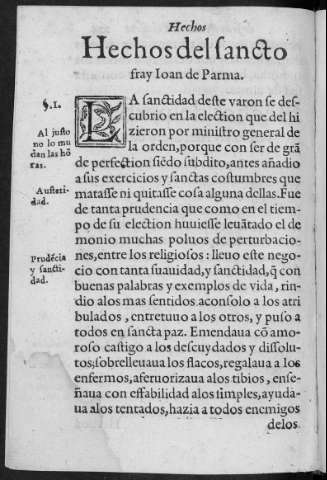 Hechos
Hechos del sancto
fray Ioan de Parma.
§.I.
Al justo
no lo mu
dan las hō
ras.
Austeri-
dad.
Prudēcia
y sancti-
dad.
LA sanctidad deste varon se des-
cubrio en la election que del hi
zieron por ministro general de
la orden, porque con ser de grā
de perfection siēdo subdito, antes añadio
a sus exercicios y sanctas costumbres que
matasse ni quitasse cosa alguna dellas. Fue
de tanta prudencia que como en el tiem-
po de su election huuiesse leuātado el de
monio muchas poluos de perturbacio-
nes, entre los religiosos: lleuo este nego-
cio con tanta suauidad, y sanctidad, q̄ con
buenas palabras y exemplos de vida, rin-
dio alos mas sentidos aconsolo a los atri
bulados, entretuuo a los otros, y puso a
todos en sancta paz. Emendaua cō amo-
roso castigo a los descuydados y dissolu-
tos; sobrelleuaua los flacos, regalaua a los
enfermos, aferuorizaua alos tibios, ense-
ñaua con effabilidad alos simples, ayuda-
ua alos tentados, hazia a todos enemigos
delos